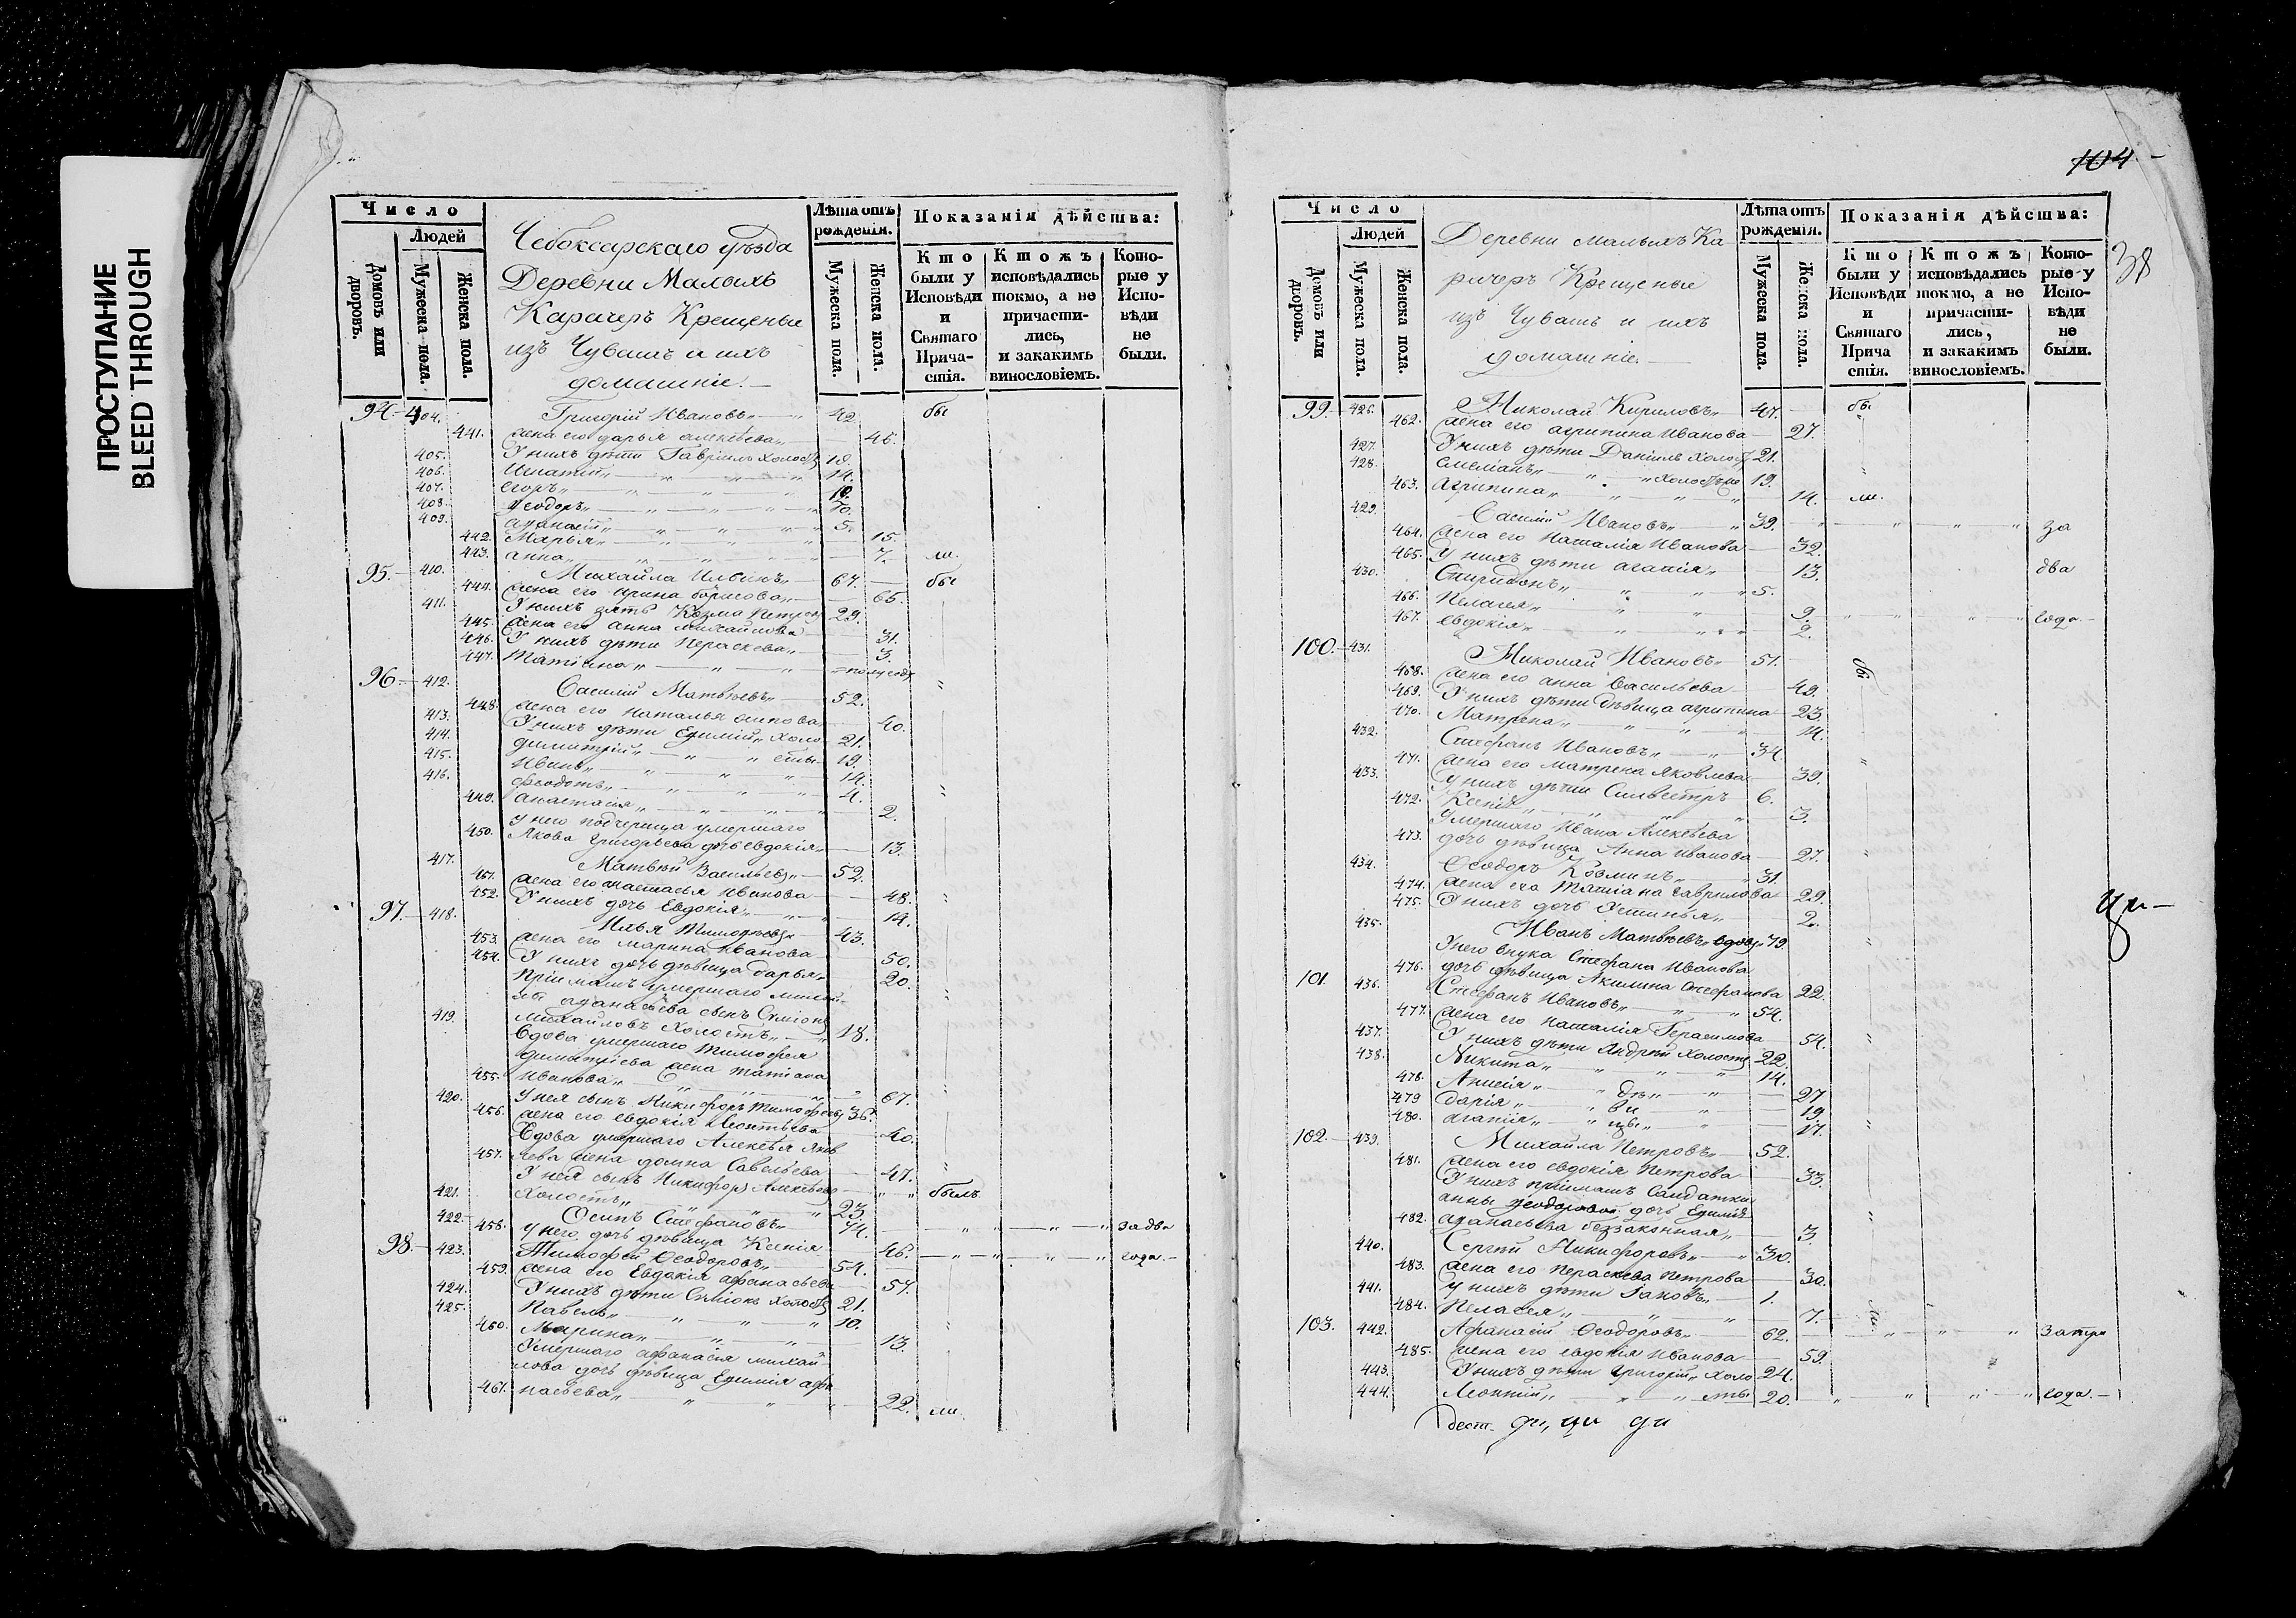 ПРОСТУПАНИЕ
BLEED THROUGH
Число
Людей
Домовъ или дворовъ.
Мужеска пола.
Женска пола.
Чебоксарскаго уѣзда
Деревни Малыхъ
Карачеръ Крещеные
изъ Чувашъ и ихъ
домашніе.
Лѣта отъ рожденія.
Мужеска пола.
Женска пола.
Показанія дѣйства:
Кто были у Исповѣди и Святаго Причастія.
Ктожъ исповѣдались токмо, а не причастились, и закакимъ винословіемъ.
Которые у Исповѣди не были.
94. 404. Григорій Ивановъ 42. бы
441. жена его дарья алексѣева 46.
405. У нихъ дѣти Гавріилъ холостъ 18.
406. Игнатій 14.
407. егоръ
408. Ѳеодоръ 10.
409. аѳанасій 5.
442. Марья 15.
443. анна 7. ли.
95. 410. Михайла Ильинъ 67. бы
444. жена его ирина борисова 65.
411. У нихъ зять Козма Петровъ 29.
445. жена его анна михайлова 31.
446. У нихъ дѣти Пераскева 3.
447. Татіана полугода
96. 412. Василій Матвѣевъ 52.
448. жена его наталья осипова 40.
413. У нихъ дѣти Ефимій холо 21.
414. димитрій сты 19.
415. Иванъ 14.
416. Ѳеодотъ 4.
449. анастасія 2.
у него подчерица умершаго
450. Якова Григорьева дочь евдокія 13.
417. Матвѣй Васильевъ 52.
451. жена его настасья иванова 48.
452. У нихъ дочь Евдокія 14.
97. 418. Илья Тимоѳеевъ 43.
453. жена его марина иванова 50.
454. У нихъ дочь дѣвица дарья 20.
пріимышъ умершаго михай
лы аѳанасьева сынъ Симіонъ
419. михайловъ холостъ 18.
Вдова умершаго Тимоѳея
димитріева жена татіана
455. иванова 67.
420. У нея сынъ Никифоръ тимоѳеевъ 36.
456. жена его евдокія Леонтьева 40.
Вдова умершаго Алексѣя Яков
457. лева жена домна Савельева 47.
У нея сынъ Никифоръ Алексѣевъ
421. холостъ 23. былъ
422. Осипъ Стефановъ 74.
458. у него дочь дѣвица Ксенія 46. за два
98. 423. Тимоѳей Ѳеодоровъ 54. года
459. жена его Евдокія афанасьева 57.
424. У нихъ дѣти Симіонъ холостъ 21.
425. Павелъ 10.
460. Марина 13.
Умершаго афанасія михай
лова дочь дѣвица Ефимія афа
461. насьева 22. ли
104
38
Число
Людей
Домовъ или дворовъ.
Мужеска пола.
Женска пола.
Деревни малыхъ Ка
ричеръ Крещеные
изъ Чувашъ и ихъ
домашніе.
Лѣта отъ рожденія.
Мужеска пола.
Женска пола.
Показанія дѣйства:
Кто были у Исповѣди и Святаго Причастія.
Ктожъ исповѣдались токмо, а не причастились, и закакимъ винословіемъ.
Которые у Исповѣди не были.
99. 426. Николай Кириловъ 47. бы
462. жена его агрипина иванова 27.
427. У нихъ дѣти Даніилъ холостъ 21.
428. емеліанъ холостъ 19.
463. агрипина 14. ли.
429. Василій Ивановъ 39. за
464. жена его наталія иванова 32.
465. У нихъ дѣти агапія 13. два
430. Спиридонъ 5.
466. Пелагея 9. года
467. евдокія 2.
100. 431. Николай Ивановъ 51. бы
468. жена его анна васильева 49.
469. У нихъ дѣти дѣвица агрипина 23.
470. Матрена 14.
432. Стефанъ Ивановъ 34.
471. жена его матрена яковлева 39.
433. у нихъ дѣти Силвестръ 6.
472. Ксенія 3.
Умершаго Ивана Алексѣева
473. дочь дѣвица Анна иванова 27.
434. Ѳеодоръ Козминъ 31.
474. жена его татіана гаврилова 29.
475. У нихъ дочь Устинья 2.
435. Иванъ Матвѣевъ вдовъ 79.
У него внука Стефана Иванова
476. дочь дѣвица Акилина Стефанова 22.
101. 436. Стефанъ Ивановъ 54.
477. жена его наталія Герасимова 54.
437. У нихъ дѣти Андрей холостъ 22.
438. Никита 14.
478. Анисія дѣ 27
479 дарія ви 19
480. агапія цы 17.
102. 439. Михайла Петровъ 52.
481. жена его евдокія петрова 33.
У нихъ пріимышъ Салдатки
анны ѳеодоровой дочь Ефимія
482. аѳанасьева беззаконная 3.
440. Сергей Никифоровъ 30.
483. жена его пераскева петрова 30.
441. у нихъ дѣти Іаковъ 1.
484. Пелагея 7. ли.
103. 442. Афанасій Ѳеодоровъ 62. за три
485. жена его евдокія иванова 59.
443. У нихъ дѣти Григорій холо 24.
444. Леонтій сты 20. года